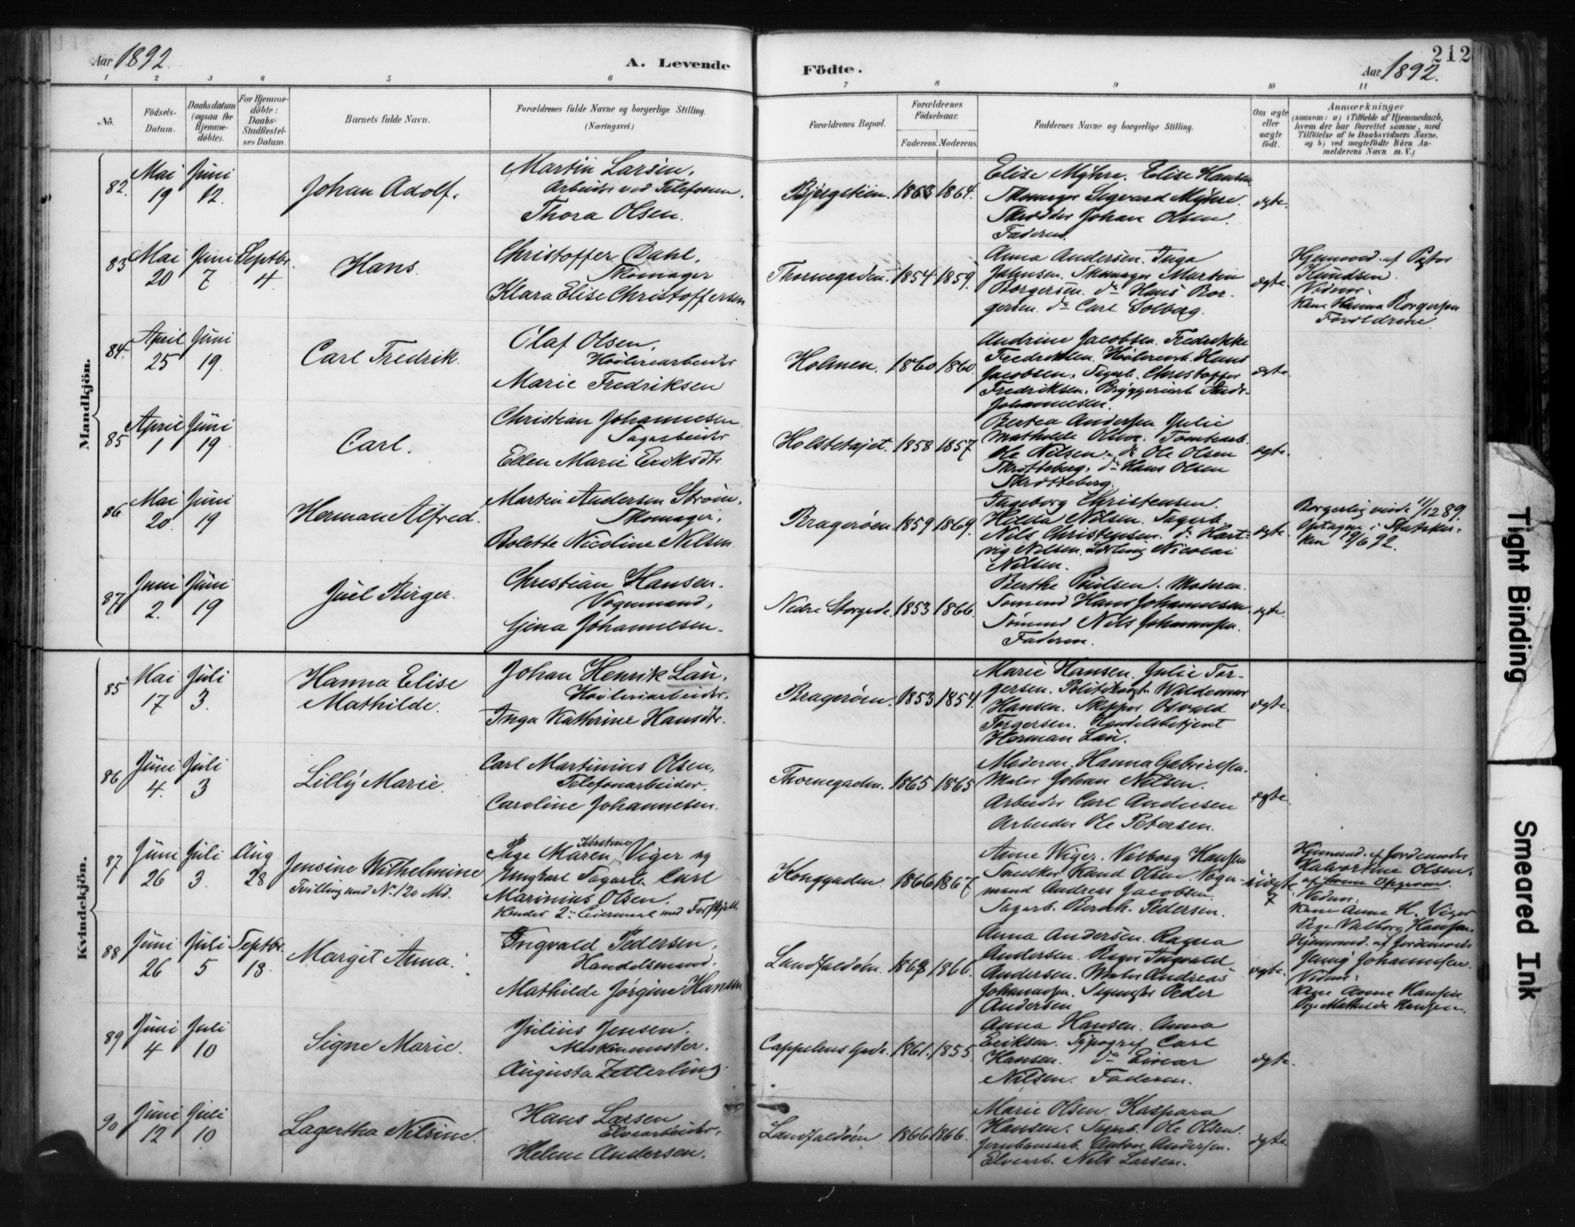 Aar 1892.
A. Levende
Födte.
Aar 1892.
212
1 2 3 4 5 6 7 8 9 10 11
No.
Födsels-
Datum.
Daabsdatum
(ogsaa for
Hjemme-
døbte).
For Hjemme-
døbte:
Daabs-
Stadfæstel-
ses Datum.
Barnets fulde Navn.
Forældrenes fulde Navne og borgerlige Stilling.
(Næringsvei.)
Forældrenes Bopæl.
Forældrenes
Fødselsaar.
Faderens. Moderens.
Faddernes Navne og borgerlige Stilling.
Om ægte
eller
uægte
født.
Anmærkninger
(saasom: a) i Tilfælde af Hjemmedaab,
hvem der har forrettet samme, med
Tilføielse af to Daabsvidners Navne,
og b) ved uægtefødte Børn An-
melderens Navn m. V.)
Mandkjön.
82. Mai 19 Juni 12. Johan Adolf.
Martin Larsen,
Arbeider ved Telefonen,
Thora Olsen.
1864.
Elise Myhre. Elise Hansen
Skomager Sigvard Myhre.
Skrædder Johan Olsen.
Faderen.
ægte.
83 Mai 20 Juni 7 Septbr. 4. Hans.
Christoffer Dahl,
Skomager
Klara Elise Christoffersen
Thornegaden. 1854 1859.
Anna Andersen. Inga
Johnsen. Skomager Martin
Borgersen. do Hans Bor-
gersen. do Carl Solberg.
ægte.
Hjemmed. af Pastor
Knudsen.
Vidner:
Kone Hanna Borgersen
Forældrene.
84. April 25 Juni 19. Carl Fredrik.
Olaf Olsen,
Høvleriarbeider
Marie Fredriksen
Holmen. 1860 1860
Andrine Jacobsen. Fredrikke
Fredriksen. Høvleriarb. Hans
Jacobsen. Sagarb. Christoffer
Fredriksen. Bryggeriarb.
Johannesen.
ægte.
85 April 1 Juni 19 Carl.
Christian Johannesen
Sagarbeider
Ellen Marie Eriksdtr.
1858 1857
Bertea Andersen. Julie
Mathilde Olsen. Tomtearb.
Ole Nilsen. do Ole Olsen
do Hans Olsen
ægte.
86 Mai 20 Juni 19 Herman Alfred.
Martin Andersen Strøm,
Skomager,
Bolette Nicoline Nilsen.
Bragerøen. 1859 1869.
Ingeborg Christensen.
Hilda Nilsen. Sagarb.
Nils Christensen. do Hart-
vig Nilsen. Nicolai
Nilsen.
ægte.
Borgerlig viede 11/12 89.
Optagne i Statskir-
ken 19/6 92.
87 Juni 2. Juni 19 Juel Birger.
Christian Hansen.
Vognmand,
Gina Johannesen.
Nedre Storgade. 1853 1866.
Berthe Paulsen. Moderen.
Tømmermd Hans Johannesen
Tømmermd Nils Johannesen.
Faderen.
ægte.
Kvindekjön.
85 Mai 17 Juli 3. Hanna Elise
Mathilde.
Johan Henrik Lau,
Høvleriarbeider,
Inga Kathrine Hansdtr.
Bragerøen. 1853 1854.
Marie Hansen. Julie Tor-
gersen. Politikonst. Waldemar
Hansen. Osvald
Torgersen. Handelsbetjent
Herman Lau.
ægte.
86 Juni 4. Juli 3 Lilly Marie.
Carl Martinius Olsen,
Telefonarbeider,
Caroline Johannesen.
Thornegaden. 1865 1865
Moderen. Hanna Gabrielsen.
Maler Johan Nilsen.
Arbeider Carl Andersen
Arbeider Ole Petersen.
ægte.
87 Juni 26 Juli 3. Aug 28 Jensine Wilhelmine
Tvilling med No 120 Md.
Pige Maren Kirstine Viger og
Ungkarl Sagarb. Carl
Marinius Olsen.
Kongegaden. 1866 1867
Anne Wiger. Valborg Hansen
Olsen. Vogn-
mand Andreas Jacobsen
Sagarb. Bernh. Pedersen.
uægte
Hjemmed. af Jordemoder
Olsen.
Vidner:
Kone Anne H. Viger
Pige Valborg Hansen.
88 Juni 26 Juli 5 Septbr. 18. Margit Anna.
Trigvald Pedersen,
Handelsmand,
Mathilde Jørgine Hansen
Landfaldøen. 1866.
Anna Andersen. Ragna
Andersen. Trigvald
Andersen. Maler Andreas
Johannesen. Sagmester Peder
Andersen
ægte.
Hjemmed. af Jordemoder
Jenny Johannesen.
Vidner:
Kone Anne Hansen
Pige Mathilde Hansen.
89 Juni 4 Juli 10 Signe Marie.
Julius Jensen,
Maskinmester,
Augusta Zetterling.
Cappelens Gade. 1861. 1855
Anna Hansen. Anna
Eriksen. Typograf Carl
Hansen. do Einar
Nilsen. Faderen.
ægte.
90 Juni 12 Juli 10 Lagertha Nilsine.
Hans Larsen
Elvearbeider,
Helene Andersen.
Landfaldøen 1866 1866.
Marie Olsen. Kaspara
Hansen. Sagarb. Ole Olsen.
Jernbanearb. Anton Andersen.
Elvearb. Nils Larsen.
ægte.
Tight Binding
Smeared Ink